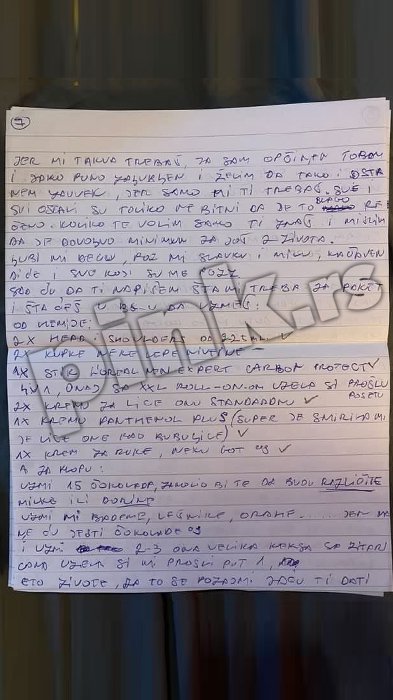 7
JER MI TAKVA TREBAŠ, JA SAM OPČINJEN TOBOM
I JAKO PUNO ZALJUBLJEN I ŽELIM DA TAKO I OSTA
NEM ZAUVEK, JER SAMO MI TI TREBAŠ. SVE I
SVI OSTALI SU TOLIKO NEBITNI DA JE TO BLAGO RE
ČENO. KOLIKO TE VOLIM SAMO TI ZNAŠ I MISLIM
DA JE DOVOLJNO MINIMUM ZA JOŠ 2 ŽIVOTA.
LJUBI MI DECU, POZ MI SLAVKU I MIKU,
I SVE KOJI SU ME
SAD ĆU DA TI NAPIŠEM ŠTA MI TREBA ZA PAKET
I ŠTA ĆEŠ U DA UZMEŠ:
OD HEMIJE:
2X HEAD I SHOULDERS OD
2X KUPKE NEKE LEPE NIVEINE
1X STIK LOREAL MEN EXPERT CARBON PROTECT ✓
4U1, ONAJ SA XXL ROLL-ON-ON UZELA SI PROŠLU
POSETU
2X KREMU ZA LICE ONU STANDARDNU ✓
1X KREMU PANTHENOL PLUS (SUPER JE SMIRILA MI
JE LICE ONE KAO BUBULJICE) ✓
1X KREM ZA RUKE, NEKU GOT ✓
A ZA KUPU:
UZMI 15 ČOKOLADA, ZAMOLIO BI TE DA BUDU RAZLIČITE
MILKE ILI DORINE
UZMI MI BADEME, LEŠNIKE, ORAHE..... JER
ĆU JESTI ČOKOLADE
I UZMI 2-3 ONA VELIKA KEKSA SA ŽITARI
CAMA UZELA SI MI PROŠLI PUT 1,
ETO ŽIVOTE, ZA TO SE POZAJMI JA ĆU TI DATI
pink.rs